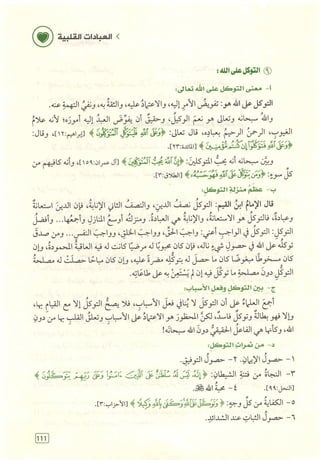 العبادات القلبية
٩ التوكل على الله :
أ- معنى التوكل على الله تعالى:
التوكل على الله هو: تفويض الأمر إليه، والاعتماد عليه، والثقة به، ونفي التهمة عنه.
والله سبحانه وتعالى هو نعم الوكيل، وحقيق أن يفوض العبد إليه أموره؛ لأنه علام
الغيوب، الرحمن الرحيم بعباده، قال تعالى: ﴿وَعَلَى اللَّهِ فَلْيَتَوَكَّلِ الْمُتَوَكِّلُونَ﴾ [إبراهيم:١٢]، وقال:
﴿وَعَلَى اللَّهِ فَتَوَكَّلُوا إِن كُنتُم مُّؤْمِنِينَ﴾ [المائدة:٢٣].
وبين سبحانه أنه يحب المتوكلين: ﴿إِنَّ اللَّهَ يُحِبُّ الْمُتَوَكِّلِينَ﴾ [آل عمران:١٥٩]، وأنه كافيهم من
كل سوء: ﴿وَمَن يَتَوَكَّلْ عَلَى اللَّهِ فَهُوَ حَسْبُهُ﴾ [الطلاق:٣].
ب- عظم منزلة التوكل:
قال الإمام ابن القيم: التوكل نصف الدين، والنصف الثاني الإنابة، فإن الدين استعانة
وعبادة، فالتوكل هو الاستعانة، والإنابة هي العبادة. ومنزلته أوسع المنازل وأجمعها... وأفضل
التوكل: التوكل في الواجب أعني: واجب الحق، وواجب الخلق، وواجب النفس... ومن صدق
توكله على الله في حصول شيء ناله، فإن كان محبوبًا له مرضيًا كانت له فيه العاقبة المحمودة، وإن
كان مسخوطًا مبغوضًا كان ما حصل له بتوكله مضرة عليه، وإن كان مباحًا حصلت له مصلحة
التوكل دون مصلحة ما توكل فيه إن لم يستعن به على طاعاته.
ج- بين التوكل وفعل الأسباب:
أجمع العلماء على أن التوكل لا ينافي فعل الأسباب، فلا يصح التوكل إلا مع القيام بها،
وإلا فهو بطالة وتوكل فاسد، لكن المحظور هو الاعتماد على الأسباب وتعلق القلب بها من دون
الله، وكأنها هي الفاعل الحقيقي دون الله سبحانه!
د- من ثمرات التوكل:
١- حصول الإيمان. ٢- حصول التوفيق.
٣- النجاة من فتنة الشيطان: ﴿إِنَّهُ لَيْسَ لَهُ سُلْطَانٌ عَلَى الَّذِينَ آمَنُوا وَعَلَىٰ رَبِّهِمْ يَتَوَكَّلُونَ﴾
[النحل:٩٩]. ٤- محبة الله
٥- الكفاية من كل وجه: ﴿وَتَوَكَّلْ عَلَى اللَّهِ وَكَفَىٰ بِاللَّهِ وَكِيلًا﴾ [الأحزاب:٣].
٦- حصول الثبات عند الشدائد.
١١١